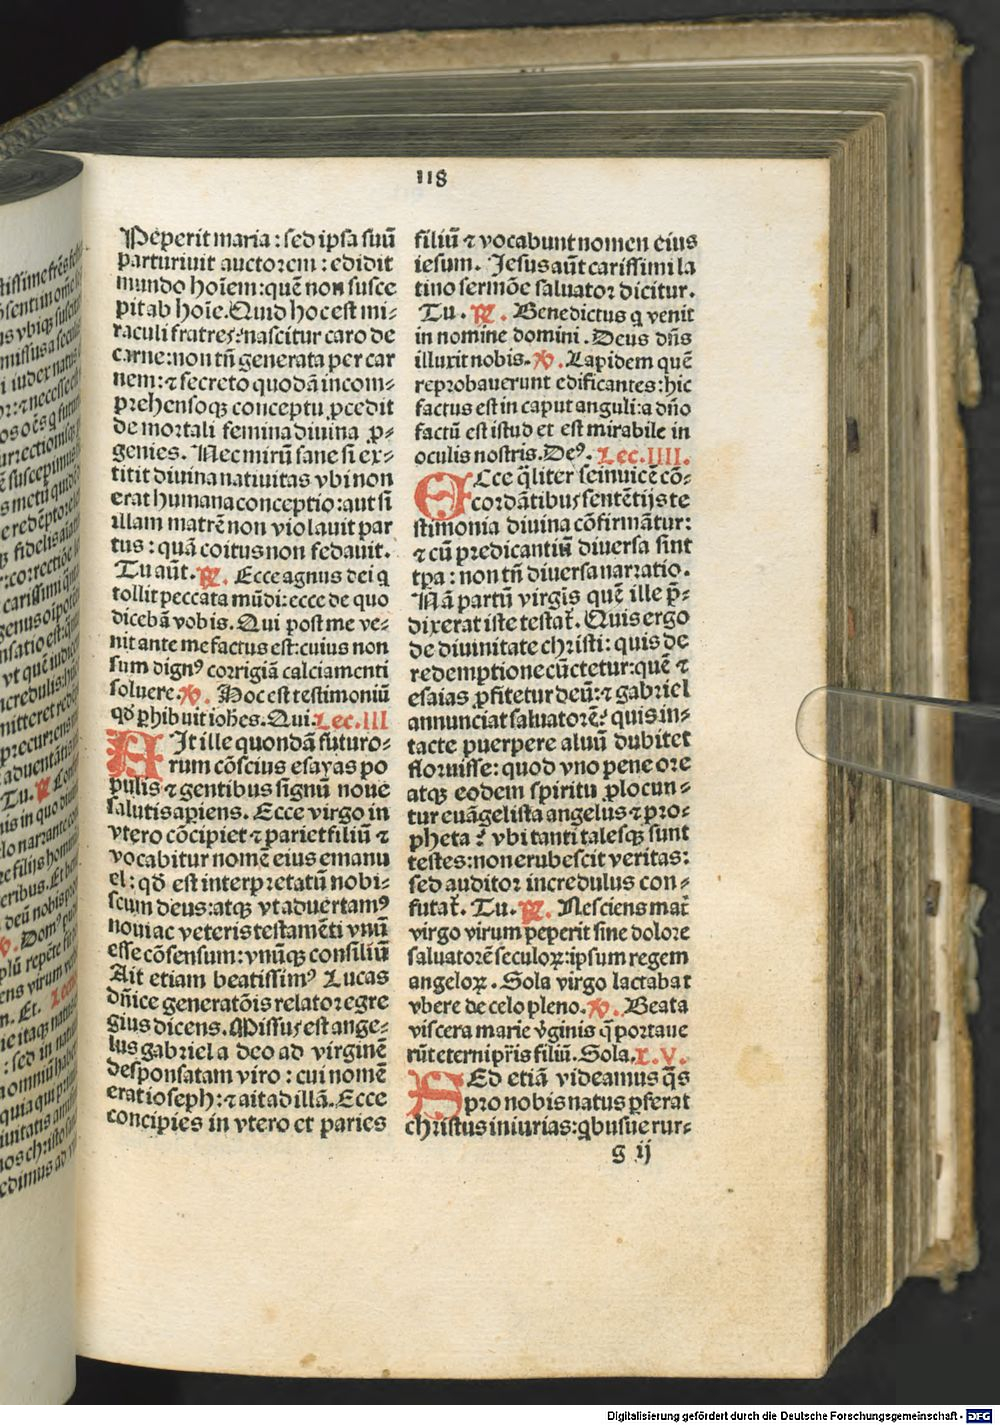 118
Peperit maria : sed ipsa suū
parturivit auctorem : edidit
mundo hoīem: quē non susce
pit ab hoīe. Quid hoc est mi⸗
raculi fratres: nascitur caro de
carne: non tñ generata per car
nem: ⁊ secreto quodā incom⸗
prehensoqꝫ conceptu ꝓcedit
de mortali femina diuina ꝓ⸗
genies. Nec mirū sane si ex⸗
titit diuina natiuitas vbi non
erat humana conceptio: aut si
illam matrē non violauit par
tus : quā coitus non fedauit.
Tu aūt. ℟. Ecce agnus dei q
tollit peccata mūdi: ecce de quo
dicebā vobis. Qui post me ve⸗
nit ante me factus est: cuius non
sum dignꝰ corrigiā calciamenti
soluere. ℣. Hoc est testimoniū
qđ ꝑhibuit ioħes. Qui. Lec. III
AIt ille quondā futuro⸗
rum cōscius esayas po
pulis ⁊ gentibus signū noue
salutis apiens. Ecce virgo in
vtero cōcipiet ⁊ pariet filiū ⁊
vocabitur nomē eius emanu
el: qđ est interpretatū nobi⸗
scum deus: atqꝫ vt aduertamꝰ
noui ac veteris testamēti vnū
esse cōsensum: vnūqꝫ consiliū
Ait etiam beatissimꝰ Lucas
dñice generatōis relator egre
gius dicens. Missus est ange⸗
lus gabriel a deo ad virginē
desponsatam viro : cui nomē
erat ioseph: ⁊ ait ad illā. Ecce
concipies in vtero et paries
filiū ⁊ vocabunt nomen eius
iesum. Jesus aūt carissimi la
tino sermōe saluator dicitur.
Tu. ℟. Benedictus q venit
in nomine domini. Deus dñs
illuxit nobis. ℣. Lapidem quē
reprobauerunt edificantes: hic
factus est in caput anguli: a dño
factū est istud et est mirabile in
oculis nostris. Deꝰ. Lec. IIII.
ECce qͣliter seinuicē cō⸗
cordātibus sentētijs te
stimonia diuina cōfirmātur:
⁊ cū predicantiū diuersa sint
tꝑa : non tñ diuersa narratio.
Nā partū virgīs quē ille p̄⸗
dixerat iste testat᷑. Quis ergo
de diuinitate christi: quis de
redemptione cūctetur: quē ⁊
esaias ꝓfitetur deū: ⁊ gabriel
annunciat saluatorē? quis in⸗
tacte puerpere aluū dubitet
floruisse: quod vno pene ore
atqꝫ eodem spiritu ꝓlocun⸗
tur euāgelista angelus ⁊ pro⸗
pheta ? vbi tanti talesqꝫ sunt
testes: non erubescit veritas:
sed auditor incredulus con⸗
futat᷑. Tu. ℟. Nesciens mat᷑
virgo virum peperit sine dolore
saluatorē seculoꝝ: ipsum regem
angeloꝝ. Sola virgo lactabat
vbere de celo pleno. ℣. Beata
viscera marie v̓ginis q̄ portaue
rūt eterni pr̄is filiū. Sola. L. V.
SEd etiā videamus q̄s
pro nobis natus ꝑferat
christus iniurias: qbus ue rur⸗
g ij
Digitalisierung gefördert durch die Deutsche Forschungsgemeinschaft - DFG